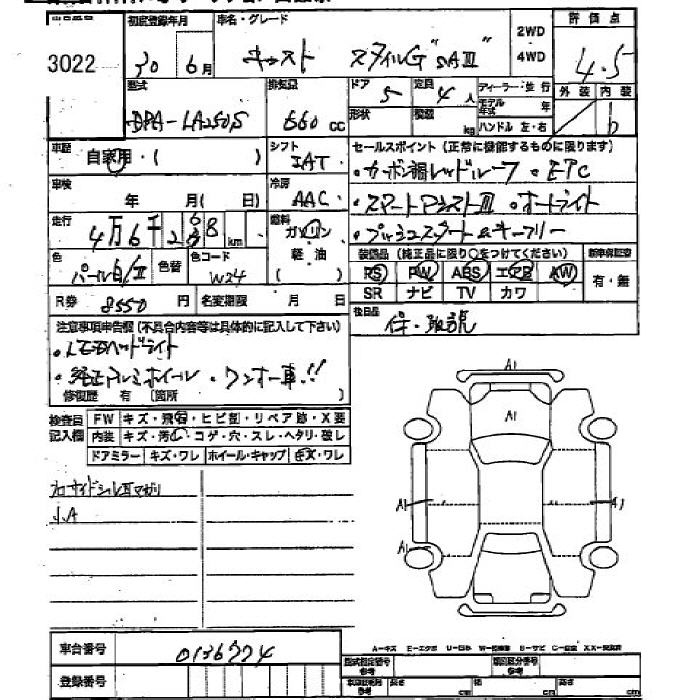 3022
初度登録年月 車名・グレード 評価点
30年 6月 キャスト スタイルG"SAⅢ" 2WD 4WD 4.5
型式 排気量 ドア 定員 ディーラー・並行 外装 内装
DBA-LA250S 660cc 5 4人 モデル年式 年 b
形状 積載 kg ハンドル 左・右
車歴 自家用・( ) シフト IAT セールスポイント(正常に機能するものに限ります)
・カーボン調レッドルーフ ・ETC
車検 年 月(日) 冷房 AAC ・スマートアシストⅢ ・オートライト
走行 4万6千268km 燃料 ガソリン 軽油 ( ) ・プッシュスタート&キーフリー
色 パール白/Ⅱ 色替 色コード W24 装備品(純正品に限り〇をつけてください) 新車保証書
PS PW ABS エアB AW 有・無
SR ナビ TV カワ
R券 8550円 名変期限 月 日 後日品 保・取説
注意事項申告欄(不具合内容等は具体的に記入して下さい)
・LEDヘッドライト
・純正アルミホイール ・ワンオー車!!
修復歴 有 〔箇所 〕
検査員記入欄 FW キズ・飛石・ヒビ割・リペア跡・X要
内装 キズ・汚れ・コゲ・穴・スレ・ヘタリ・破レ
ドアミラー キズ・ワレ ホイール・キャップ キズ・ワレ
サイドシル耳マガリ
A1
A1
A1 A1
A1
車台番号 0136774
A-キズ E-エクボ
登録番号 型式指定番号 参考 類別区分番号 参考
長さ cm 幅 cm 高さ cm